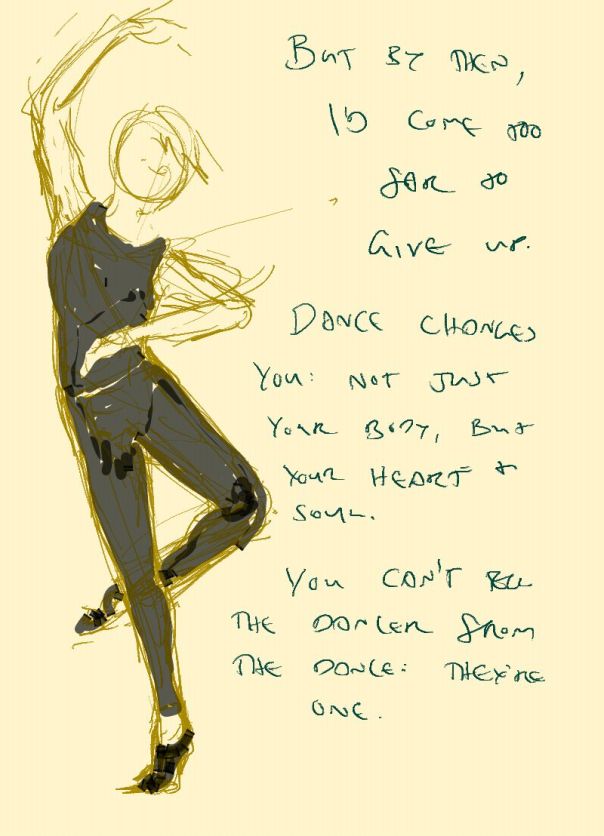 But by then,
I'd come too
far to
give up.
Dance changes
you: not just
your body, but
your heart &
soul.
You can't tell
the dancer from
the dance: they're
one.